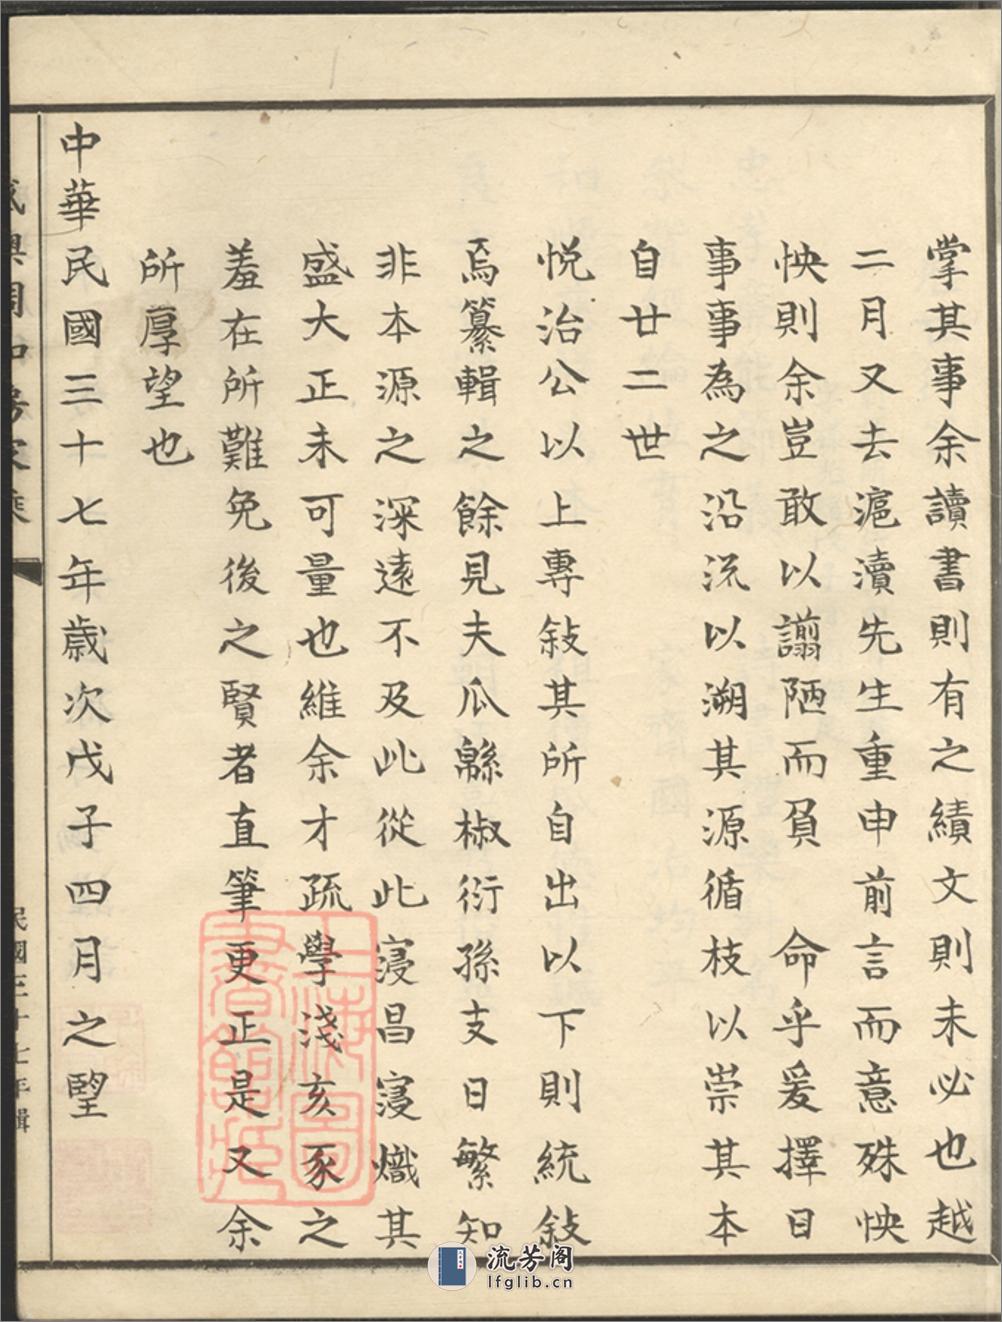 掌其事余讀書則有之績文則未必也越
二月又去滬瀆先生重申前言而意殊怏
怏則余豈敢以謭陋而負　命乎爰擇日
事事為之沿流以溯其源循枝以崇其本
自廿二世
悅治公以上專敍其所自出以下則統敍
焉纂輯之餘見夫瓜緜椒衍孫支日繁知
非本源之深遠不及此從此寖昌寖熾其
盛大正未可量也維余才疏學淺亥豕之
羞在所難免後之賢者直筆更正是又余
所厚望也
中華民國三十七年歲次戊子四月之望
民國三十七年輯
上海圖書館藏
流芳阁
lfglib.cn